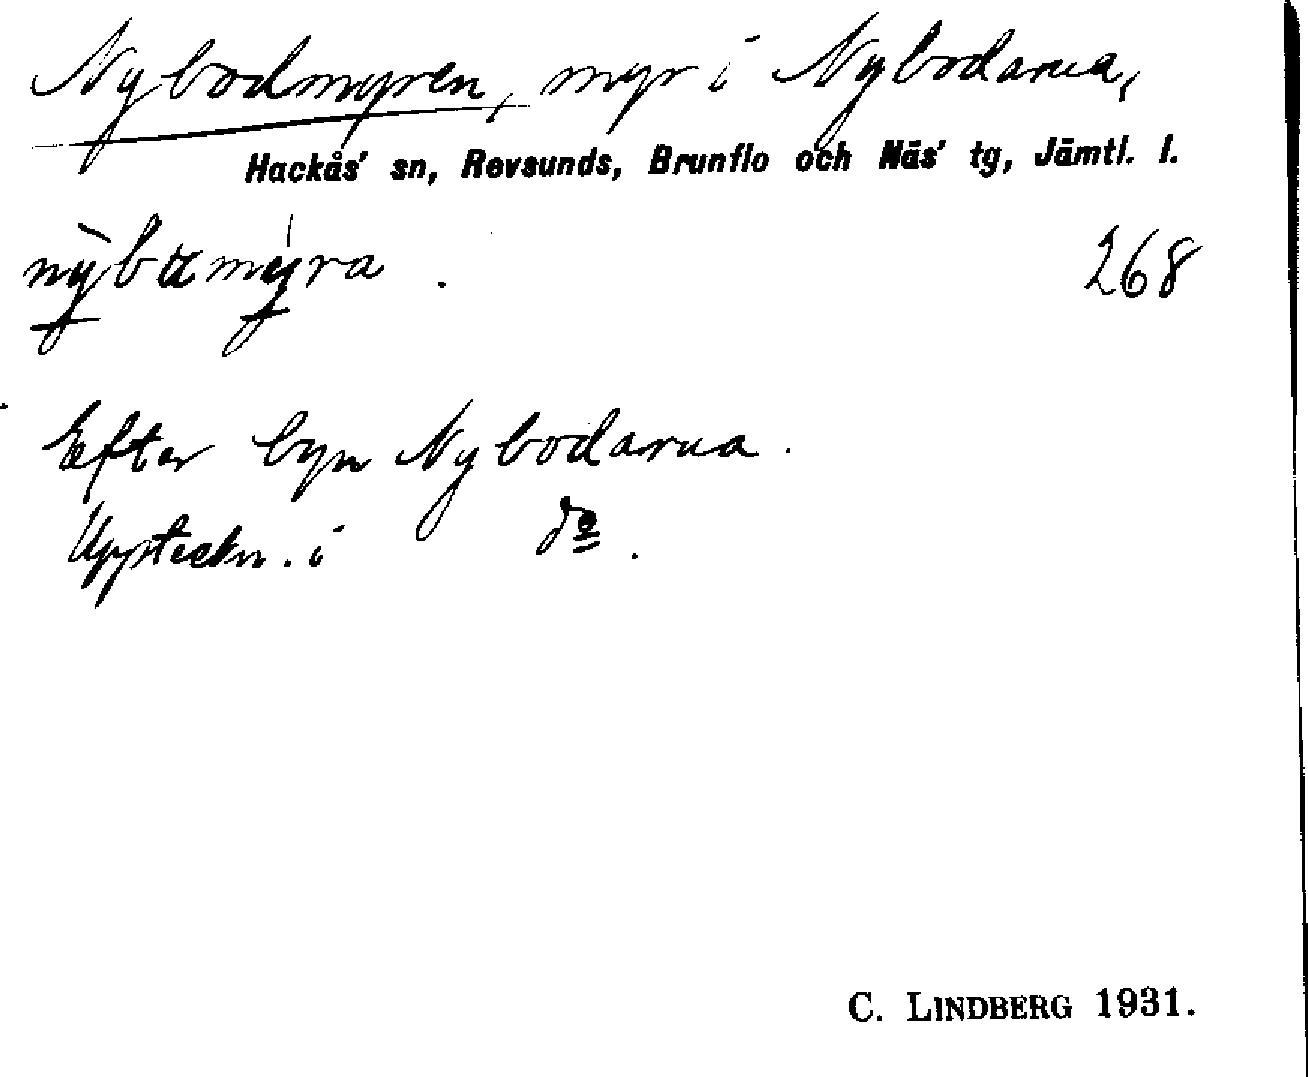 Nybodmyren, myr i Nybodarna,
Hackås' sn, Revsunds, Brunflo och Näs' tg, Jämtl. l.
268
Efter byn Nybodarna.
Uppteckn. i do.
C. LINDBERG 1931.